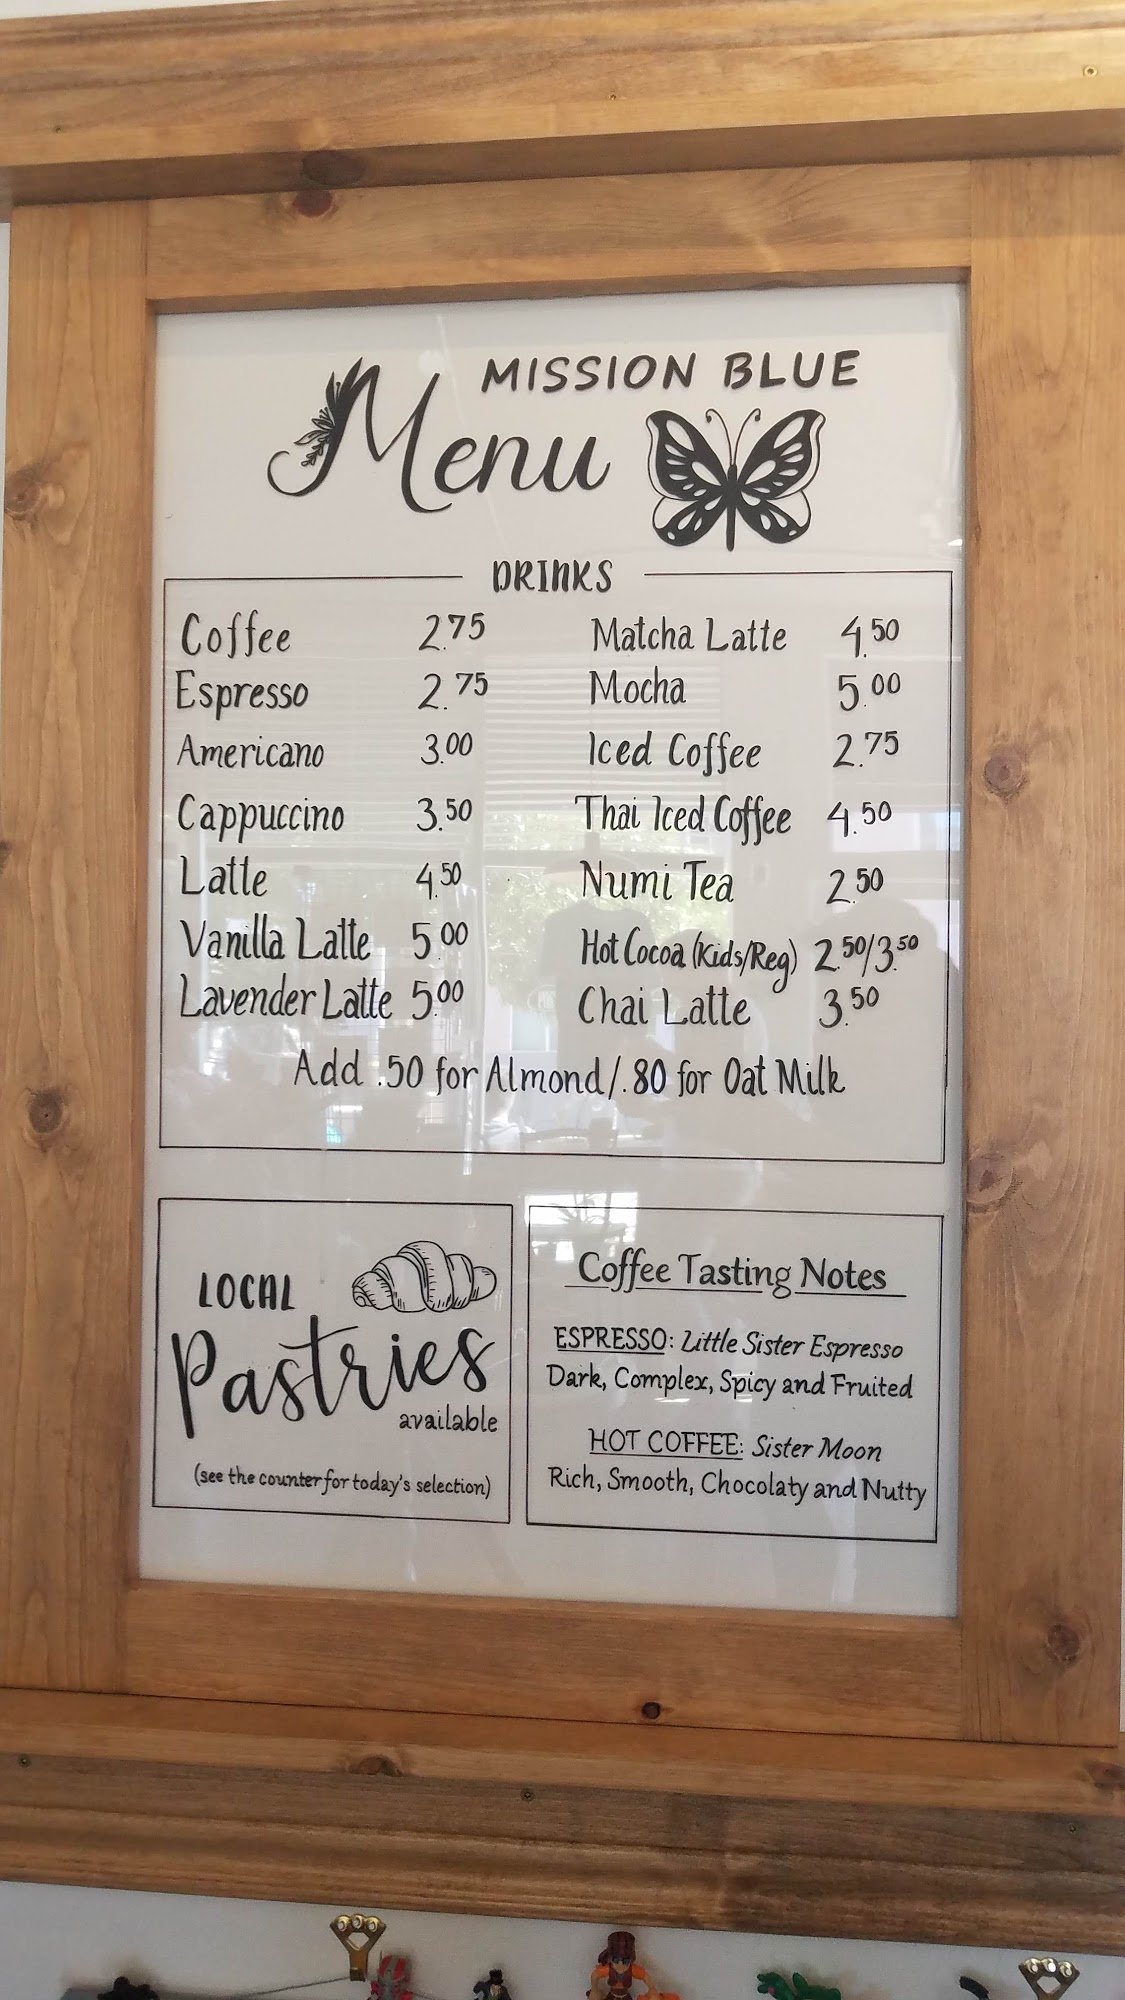 MISSION BLUE
Menu
DRINKS
Coffee 2.75
Espresso 2.75
Americano 3.00
Cappuccino 3.50
Latte 4.50
Vanilla Latte 5.00
Lavender Latte 5.00
Matcha Latte 4.50
Mocha 5.00
Iced Coffee 2.75
Thai Iced Coffee 4.50
Numi Tea 2.50
Hot Cocoa (Kids/Reg) 2.50/3.50
Chai Latte 3.50
Add .50 for Almond/.80 for Oat Milk
LOCAL
Pastries
available
(see the counter for today's selection)
Coffee Tasting Notes
ESPRESSO: Little Sister Espresso
Dark, Complex, Spicy and Fruited
HOT COFFEE: Sister Moon
Rich, Smooth, Chocolaty and Nutty